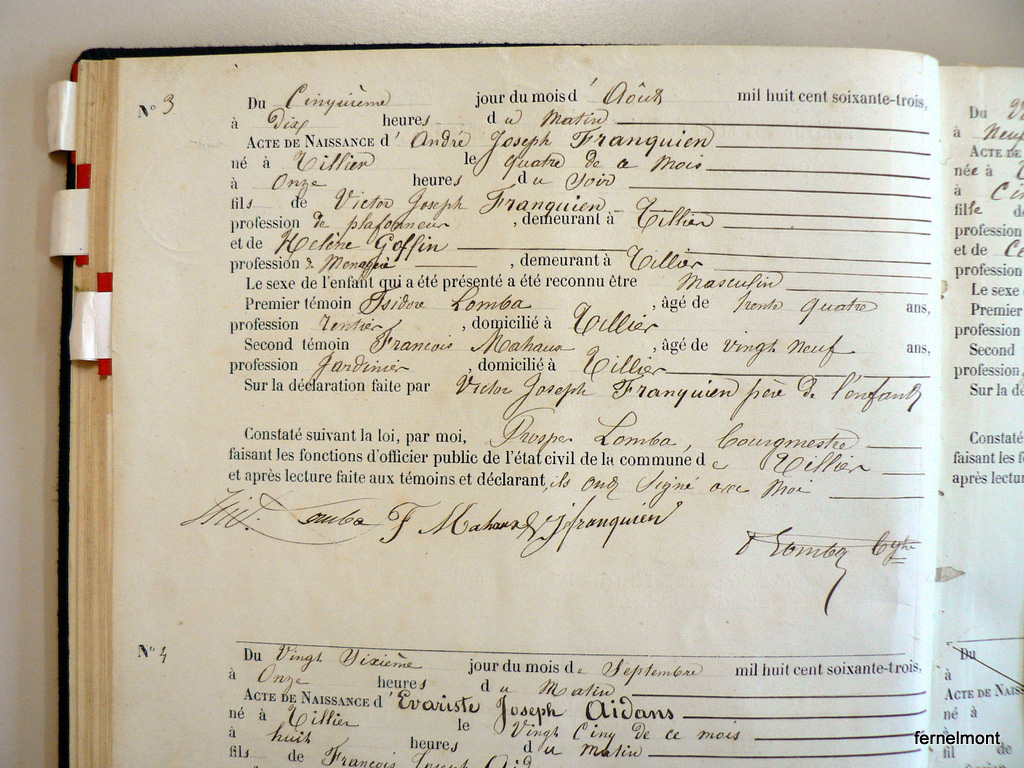 N° 3
Du Cinquième jour du mois d' Août mil huit cent soixante-trois,
à Dix heures du Matin
ACTE DE NAISSANCE d' André Joseph Franquien
né à Tillier le quatre de ce mois
à Onze heures du Soir
fils de Victor Joseph Franquien
profession de plafonneur, demeurant à Tillier
et de Hélène Goffin
profession de Menagère, demeurant à Tillier
Le sexe de l'enfant qui a été présenté a été reconnu être Masculin
Premier témoin Isidore Lomba, âgé de trente quatre ans,
profession Rentier, domicilié à Tillier
Second témoin François Mahaux, âgé de vingt neuf ans,
profession Jardinier, domicilié à Tillier
Sur la déclaration faite par Victor Joseph Franquien père de l'enfant
Constaté suivant la loi, par moi, Prosper Lomba, bourgmestre
faisant les fonctions d'officier public de l'état civil de la commune de Tillier
et après lecture faite aux témoins et déclarant, ils ont signé avec Moi
Lomba F Mahaux VJ franquien
P Lomba Bgtre
N° 4
Du Vingt Sixième jour du mois de Septembre mil huit cent soixante-trois,
à Onze heures du Matin
ACTE DE NAISSANCE d' Evariste Joseph Aidans
né à Tillier le Vingt Cinq de ce mois
à huit heures du Matin
fils de François Joseph
Du
à Neuf
ACTE DE
née à
à Cin
fille de
profession
et de
profession
Le sexe
Premier
profession
Second
profession
Sur la dé
Constaté
faisant les f
après lectur
Du
à
ACTE DE NAISS
né à
à
fils de
fernelmont